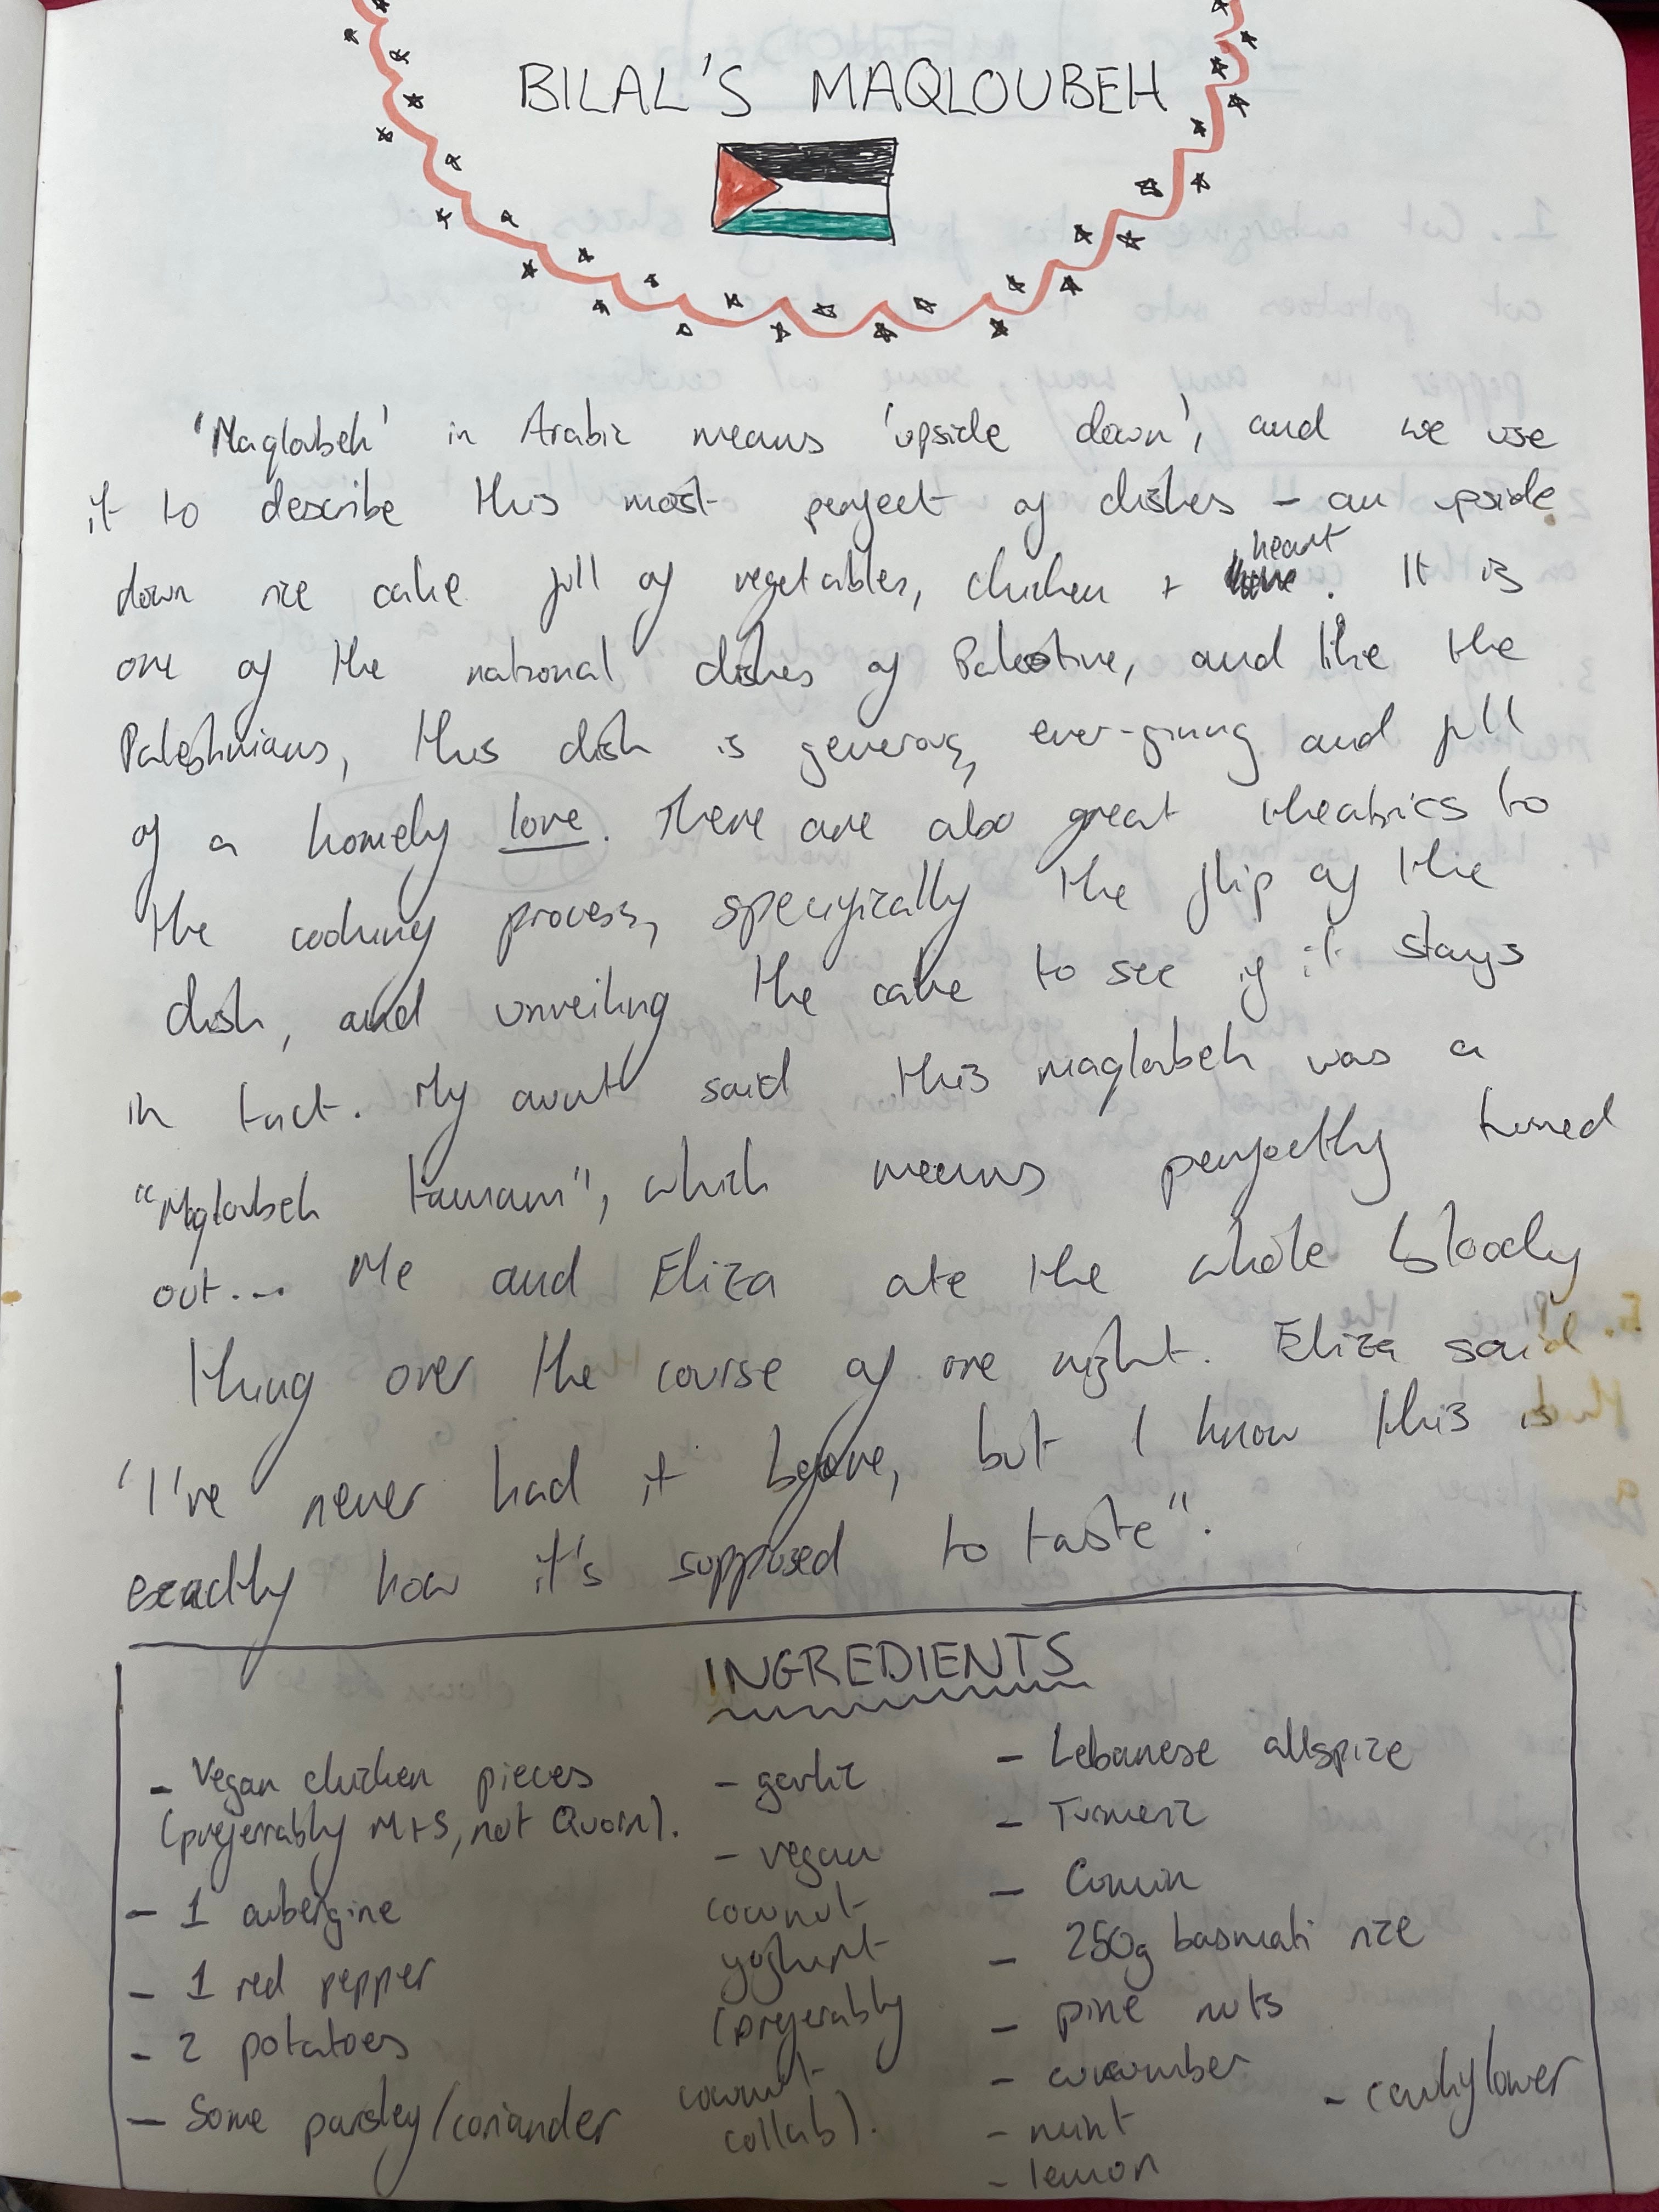 BILAL'S MAQLOUBEH
'Maqloubeh' in Arabic means 'upside down', and we use
it to describe this most perfect of dishes - an upside
down rice cake full of vegetables, chicken + heart. It is
one of the national dishes of Palestine, and like the
Palestinians, this dish is generous, ever-giving and full
of a homely love. There are also great theatrics to
the cooking process, specifically the flip of the
dish, and unveiling the cake to see if it stays
in tact. My aunt said this maqloubeh was a
"Maqloubeh tamam", which means perfectly turned
out... Me and Eliza ate the whole bloody
thing over the course of one night. Eliza said
'I've never had it before, but I know this is
exactly how it's supposed to taste".
INGREDIENTS
- Vegan chicken pieces
(preferrably M+S, not Quorn).
- 1 aubergine
- 1 red pepper
- 2 potatoes
- Some parsley/coriander
- garlic
- vegan
coconut
yoghurt
(preferably
coconut
collab).
- Lebanese allspice
- Turmeric
- Cumin
- 250g basmati rice
- pine nuts
- cucumber
- mint
- lemon
- cauliflower